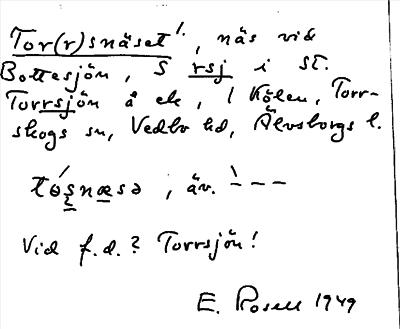 Tor(r)snäset!, näs vid
Bottesjön, S rsj i St.
Torrsjön å ek, / Kölen, Torr-
skogs sn, Vedbo hd, Älvsborgs l.
av. ` - - -
Vid f.d.? Torrsjön!
E. Rosell 1949